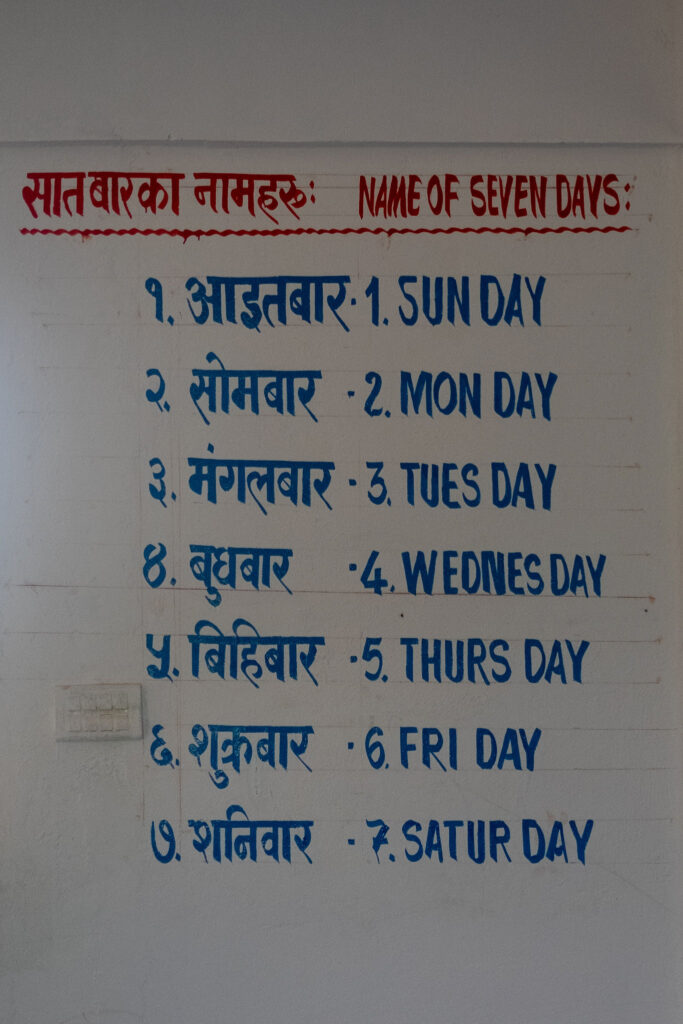 सात बारका नामहरू: NAME OF SEVEN DAYS:
१. आइतबार - 1. SUN DAY
२. सोमबार - 2. MON DAY
३. मंगलबार - 3. TUES DAY
४. बुधबार - 4. WEDNES DAY
५. बिहिबार - 5. THURS DAY
६. शुक्रबार - 6. FRI DAY
७. शनिवार - 7. SATUR DAY